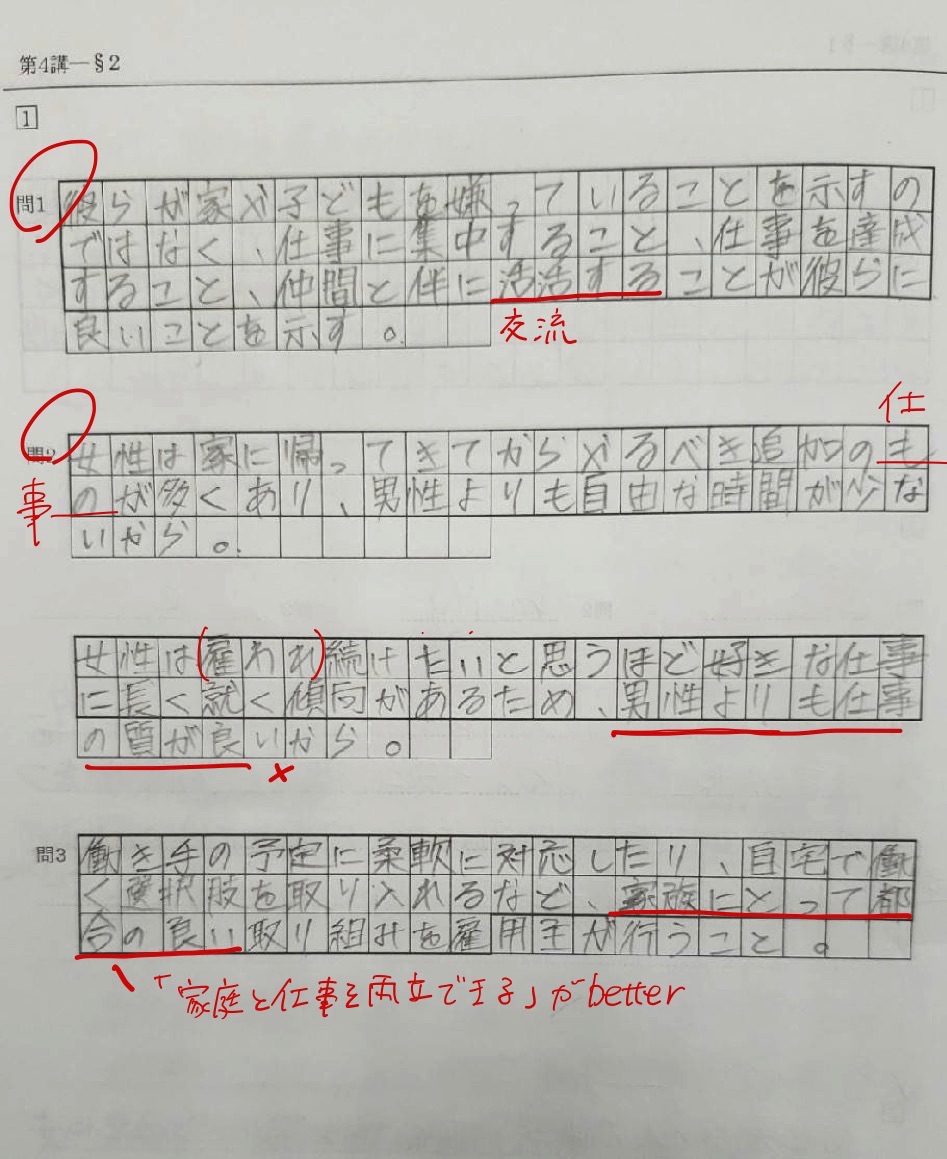 第4講―§2
1
問1
彼らが家や子どもを嫌っていることを示すの
ではなく、仕事に集中すること、仕事を達成
すること、仲間と伴に活活することが彼らに
良いことを示す。
交流
仕
問2
女性は家に帰ってきてからやるべき追加のも
事
のが多くあり、男性よりも自由な時間が少な
いから。
女性は(雇われ)続けたいと思うほど好きな仕事
に長く就く傾向があるため、男性よりも仕事
の質が良いから。
×
問3
働き手の予定に柔軟に対応したり、自宅で働
く選択肢を取り入れるなど、家族にとって都
合の良い取り組みを雇用主が行うこと。
「家庭と仕事を両立できる」がbetter